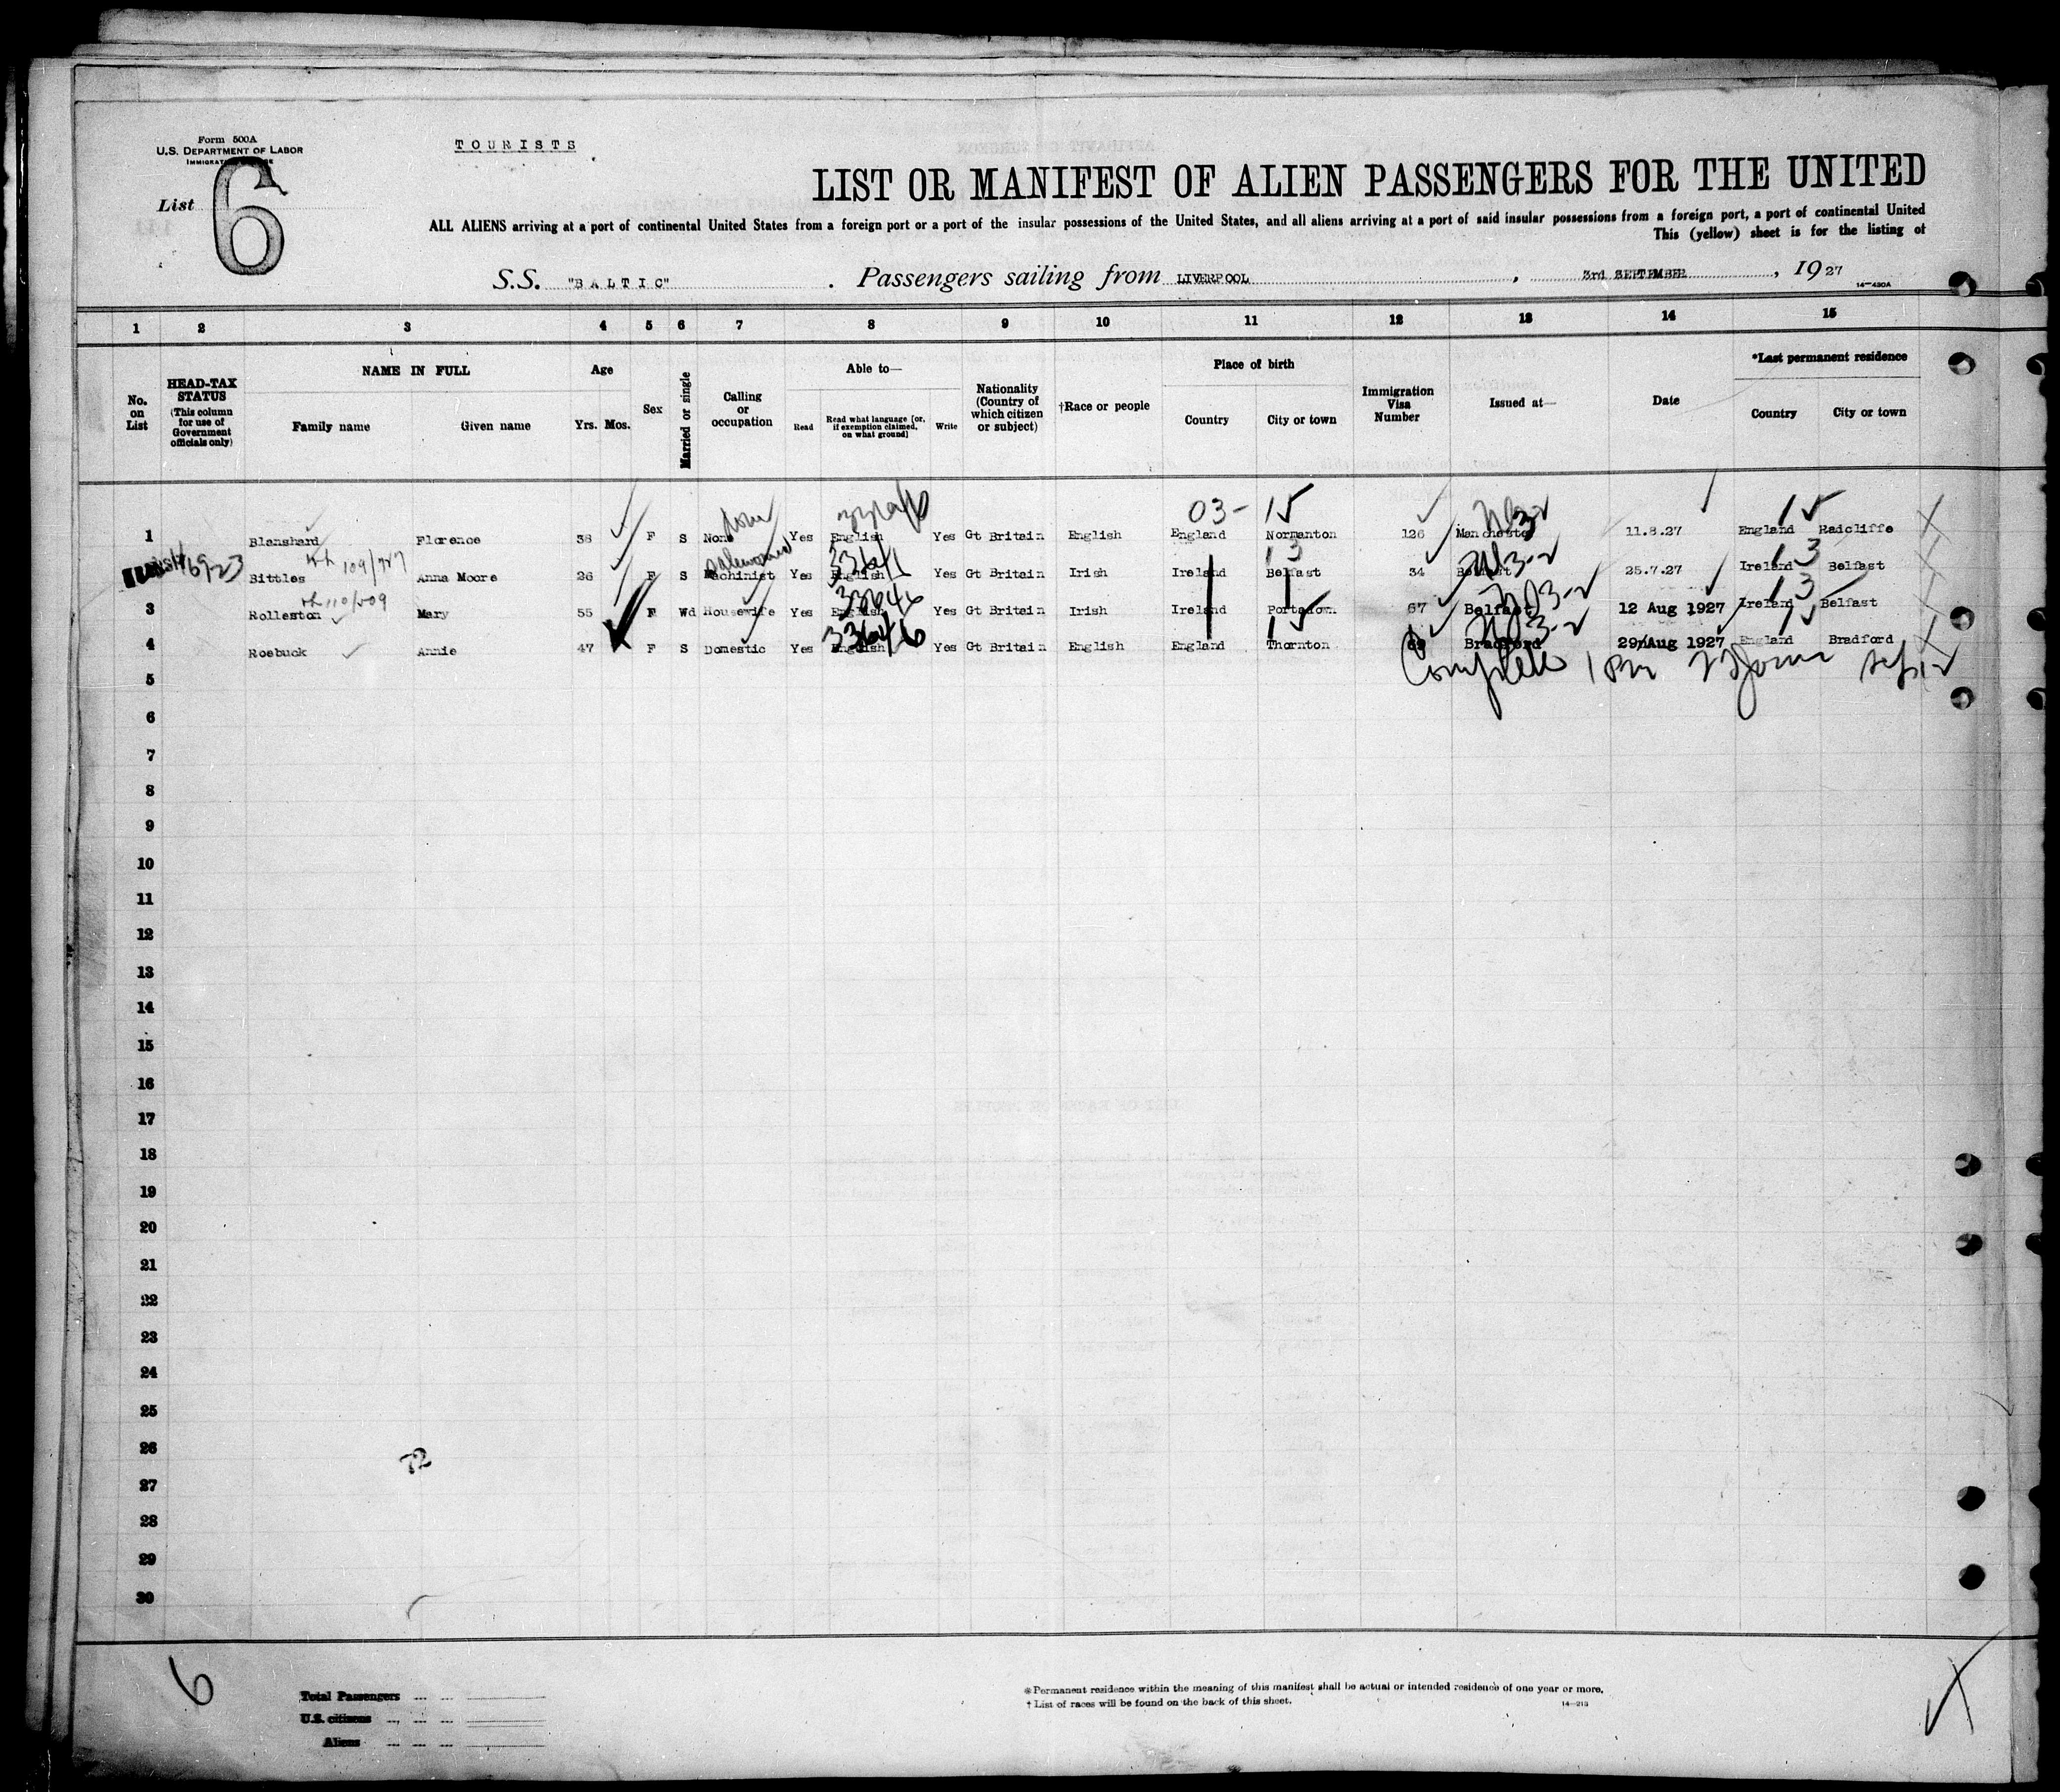 Form 500A
U.S. DEPARTMENT OF LABOR
TOURISTS
List 6
LIST OR MANIFEST OF ALIEN PASSENGERS FOR THE UNITED
ALL ALIENS arriving at a port of continental United States from a foreign port or a port of the insular possessions of the United States, and all aliens arriving at a port of said insular possessions from a foreign port, a port of continental United
This (yellow) sheet is for the listing of
S.S. "BALTIC" . Passengers sailing from LIVERPOOL , 3rd SEPTEMBER , 1927
14-430A
1 2 3 4 5 6 7 8 9 10 11 12 13 14 15
No. on List
HEAD-TAX STATUS (This column for use of Government officials only)
NAME IN FULL
Family name Given name
Age
Yrs. Mos.
Sex
Married or single
Calling or occupation
Able to—
Read Read what language [or, if exemption claimed, on what ground] Write
Nationality (Country of which citizen or subject)
†Race or people
Place of birth
Country City or town
Immigration Visa Number
Issued at—
Date
*Last permanent residence
Country City or town
03- 15 15
1 Blanshard Florence 38 F S None Yes English Yes Gt Britain English England Normanton 126 Manchester 11.8.27 England Radcliffe
109/727 saleswoman 3364/1 13 13
Bittles Anna Moore 26 F S Machinist Yes English Yes Gt Britain Irish Ireland Belfast 34 Belfast 25.7.27 Ireland Belfast
110/509 13
3 Rolleston Mary 55 F Wd Housewife Yes English Yes Gt Britain Irish Ireland Portadown 67 Belfast 12 Aug 1927 Ireland Belfast
15 15
4 Roebuck Annie 47 F S Domestic Yes English Yes Gt Britain English England Thornton Bradford 29 Aug 1927 England Bradford
Complete
5
6
7
8
9
10
11
12
13
14
15
16
17
18
19
20
21
22
23
24
25
26
27
28
29
30
6
Total Passengers
U.S. citizens
Aliens
*Permanent residence within the meaning of this manifest shall be actual or intended residence of one year or more.
† List of races will be found on the back of this sheet.
14-213